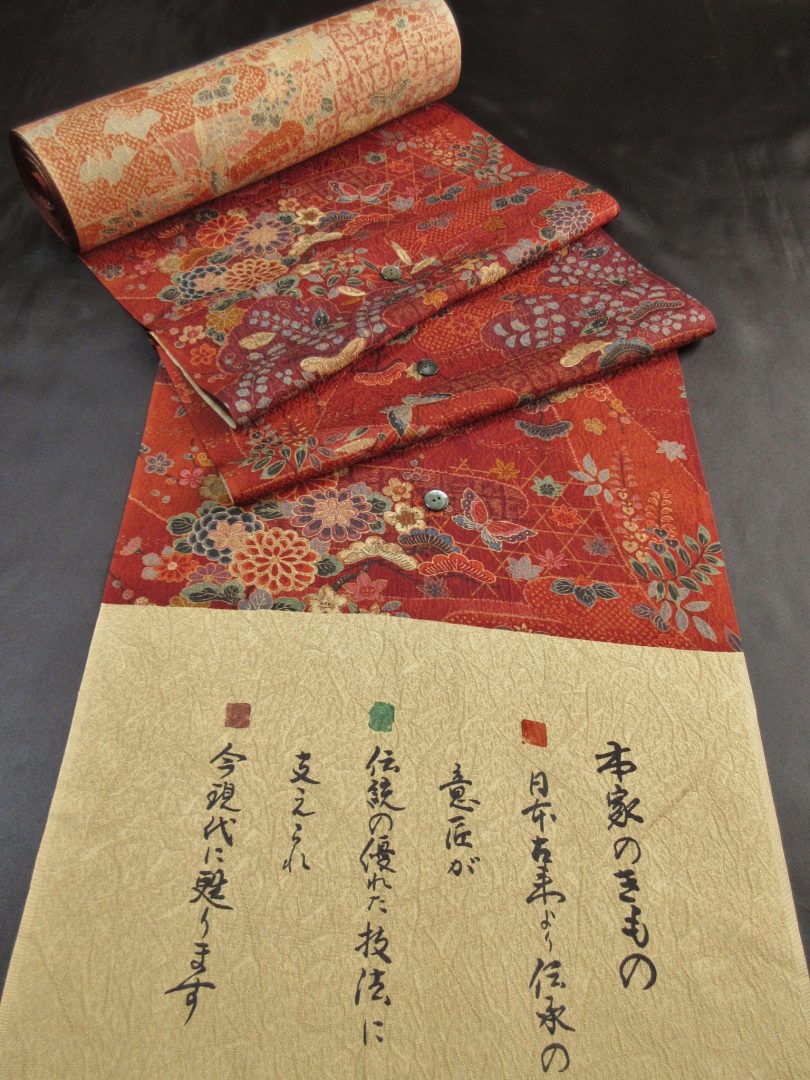 本家のきもの
日本古来より伝承の
意匠が
伝統の優れた技法に
支えられ
今現代に甦ります